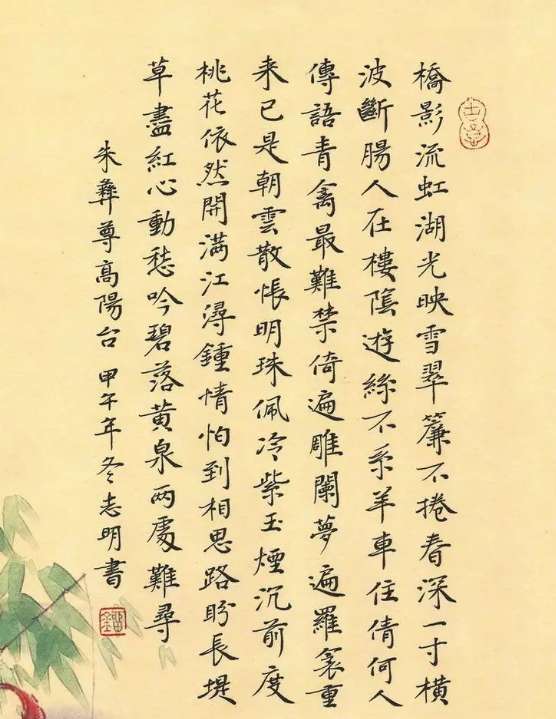 橋影流虹湖光映雪翠簾不捲春深一寸橫
波斷腸人在樓陰遊絲不系羊車住倩何人
傳語青禽最難禁倚遍雕闌夢遍羅衾重
来已是朝雲散悵明珠佩冷紫玉煙沉前度
桃花依然開满江潯鍾情怕到相思路盼長堤
草盡紅心動愁吟碧落黄泉两處難尋
朱彝尊高陽台 甲午年冬志明書